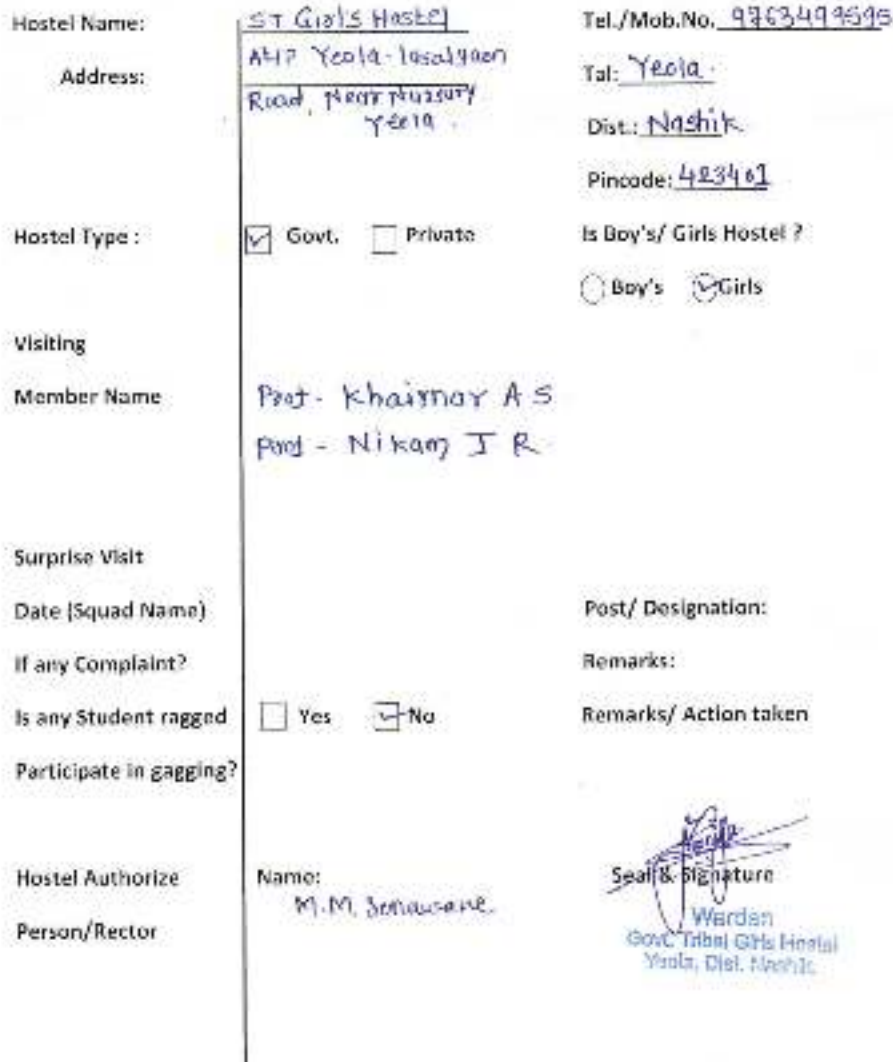 Hostel Name: ST Girls Hostel Tel./Mob.No. 9763499595
Address: At/P Yeola-lasalgaon Tal: Yeola.
Road, Near Nursury Yeela. Dist.: Nashik
Pincode: 423401
Hostel Type : Govt. Private Is Boy's/ Girls Hostel ?
Boy's Girls
Visiting
Member Name Prof- Khairnar A S
Prof - Nikam J R
Surprise Visit
Date (Squad Name) Post/ Designation:
If any Complaint? Remarks:
Is any Student ragged Yes No Remarks/ Action taken
Participate in gagging?
Hostel Authorize Name: Seal & Signature
M.M. Sonawane
Person/Rector Warden
Govt. Tribal Girls Hostel
Yeola, Dist. Nashik